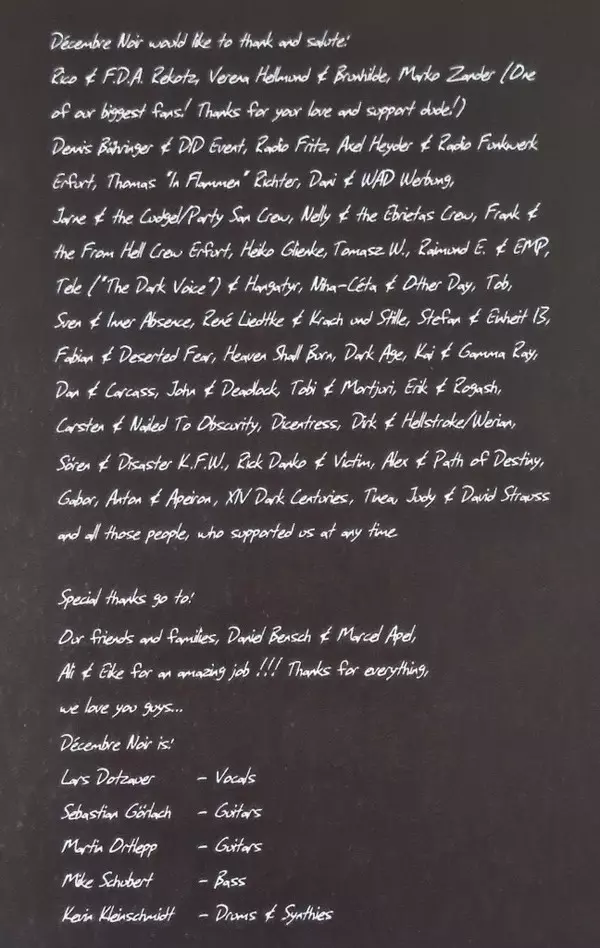 Décembre Noir would like to thank and salute:
Rico & F.D.A. Rekotz, Verena Hellmund & Brunhilde, Marko Zander (One
of our biggest fans! Thanks for your love and support dude!)
Dennis Böhringer & DID Event, Radio Fritz, Axel Heyder & Radio Funkwerk
Erfurt, Thomas "In Flammen" Richter, Dani & WAD Werbung,
Jarne & the Cudgel/Party San Crew, Nelly & the Ebrietas Crew, Frank &
the From Hell Crew Erfurt, Heiko Glienke, Tomasz W., Raimund E. & EMP,
Tele ("The Dark Voice") & Hangatyr, Niha-Céta & Other Day, Tob,
Sven & Inner Absence, René Liedtke & Krach und Stille, Stefan & Einheit 13,
Fabian & Deserted Fear, Heaven Shall Burn, Dark Age, Kai & Gamma Ray,
Dan & Carcass, John & Deadlock, Tobi & Mortjuri, Erik & Rogash,
Carsten & Nailed To Obscurity, Dicentress, Dirk & Hellstroke/Werian,
Sören & Disaster K.F.W., Rick Danko & Victim, Alex & Path of Destiny,
Gabor, Anton & Apeiron, XIV Dark Centuries, Tinea, Judy & David Strauss
and all those people, who supported us at any time
Special thanks go to:
Our friends and families, Daniel Bensch & Marcel Apel,
Ali & Eike for an amazing job !!! Thanks for everything,
we love you guys...
Décembre Noir is:
Lars Dotzauer - Vocals
Sebastian Görlach - Guitars
Martin Ortlepp - Guitars
Mike Schubert - Bass
Kevin Kleinschmidt - Drums & Synthies